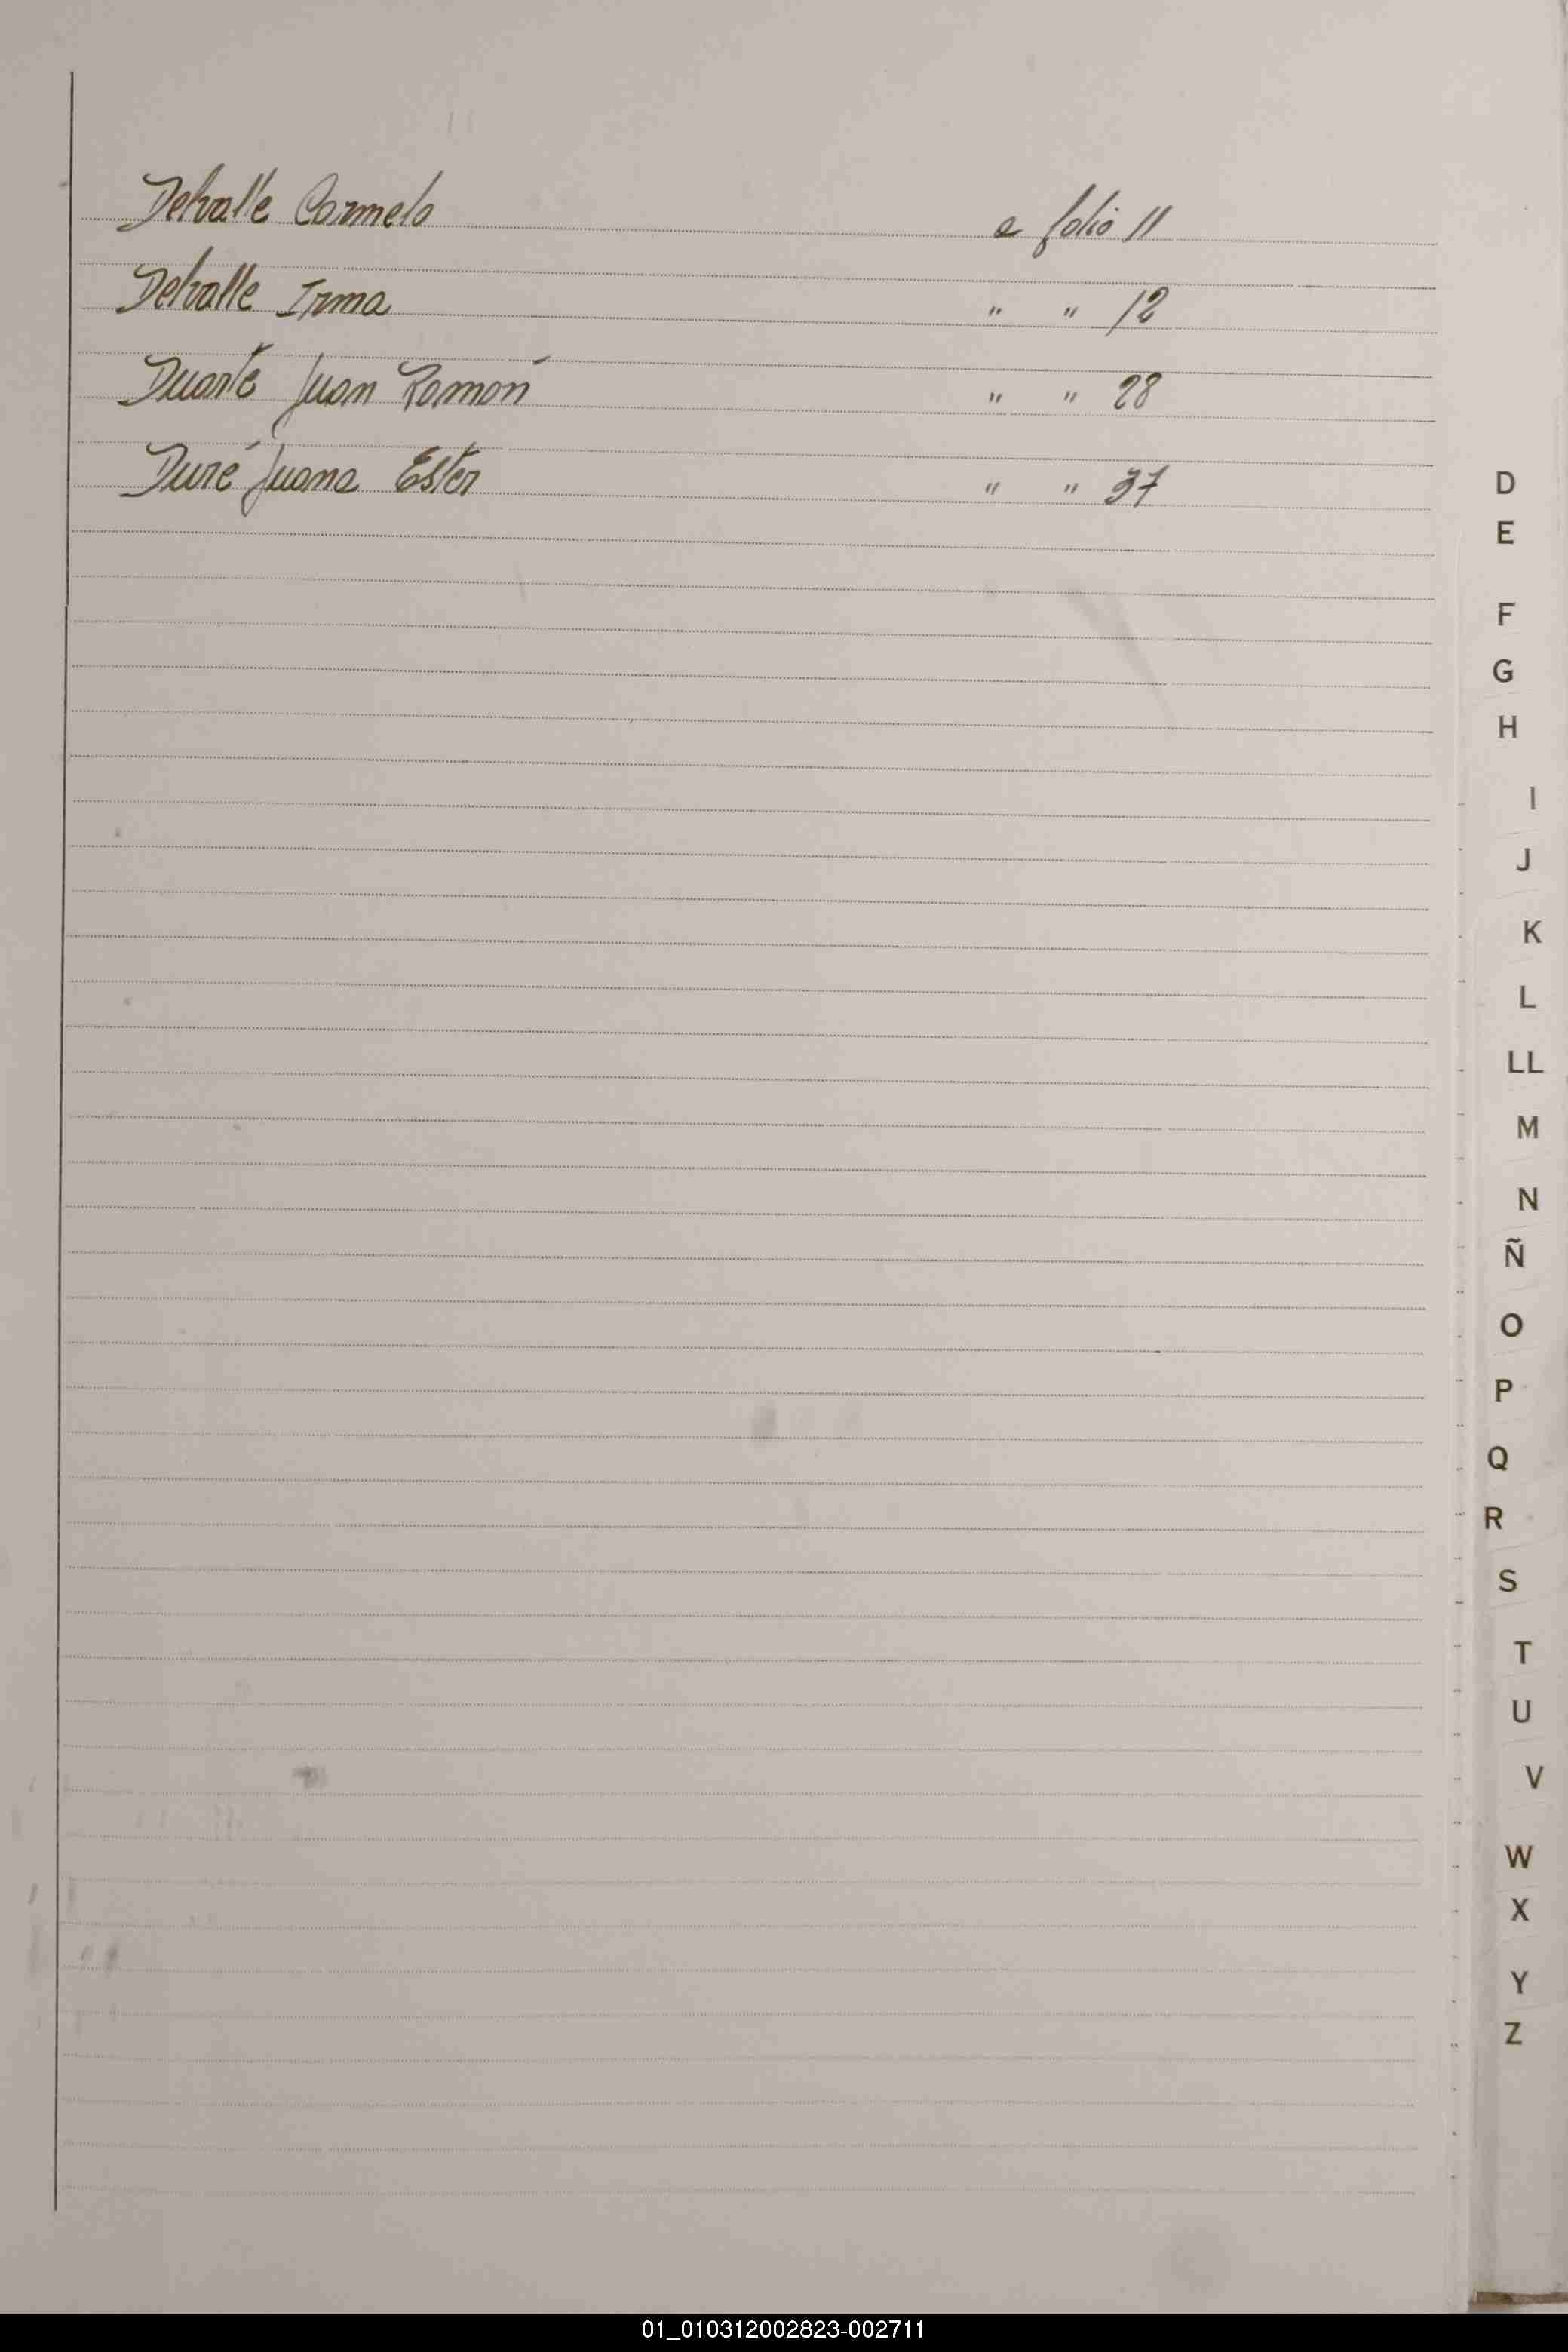 Delvalle Carmelo a folio 11
Delvalle Irma " " 12
Duarte Juan Ramón " " 28
Duré Juana Ester " " 37
D
E
F
G
H
I
J
K
L
LL
M
N
Ñ
O
P
Q
R
S
T
U
V
W
X
Y
Z
01_010312002823-002711